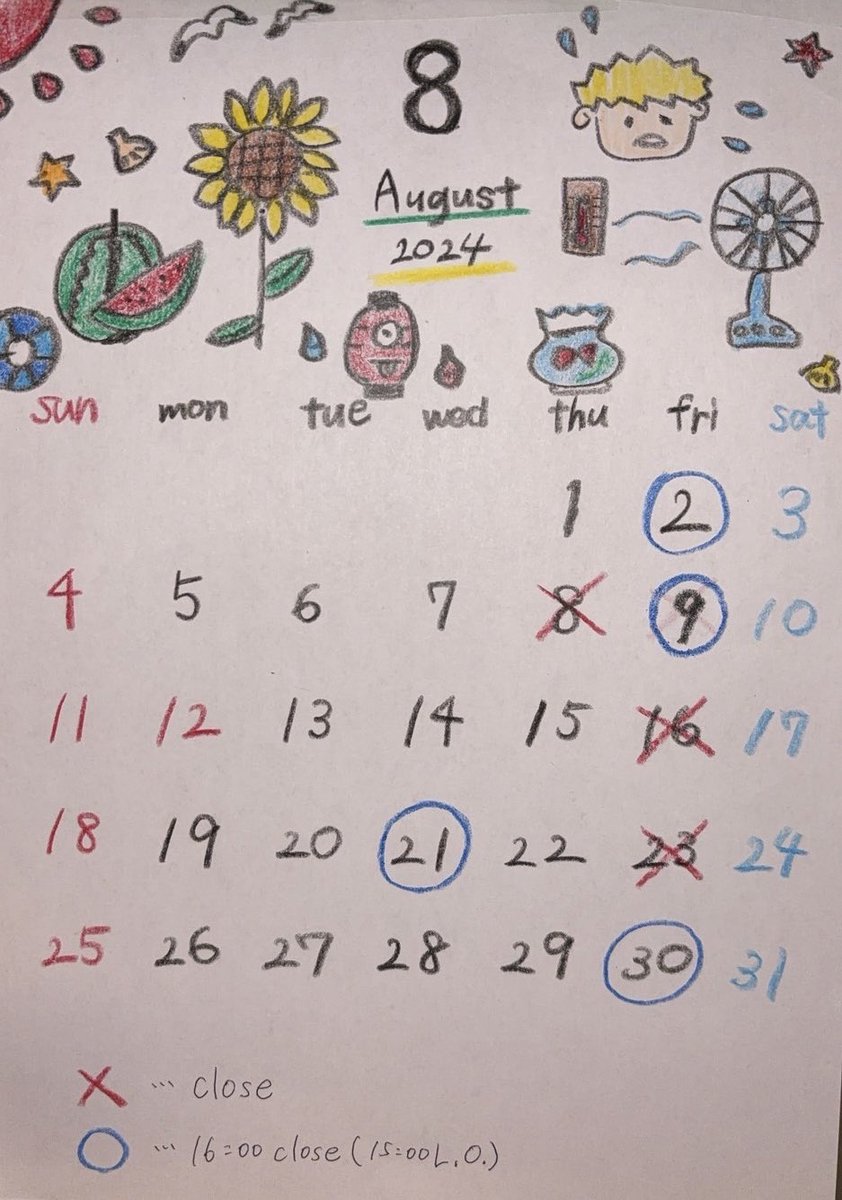 8
August
2024
sun mon tue wed thu fri sat
1 2 3
4 5 6 7 8 9 10
11 12 13 14 15 16 17
18 19 20 21 22 23 24
25 26 27 28 29 30 31
X … close
○ … 16:00 close (15:00 L.O.)